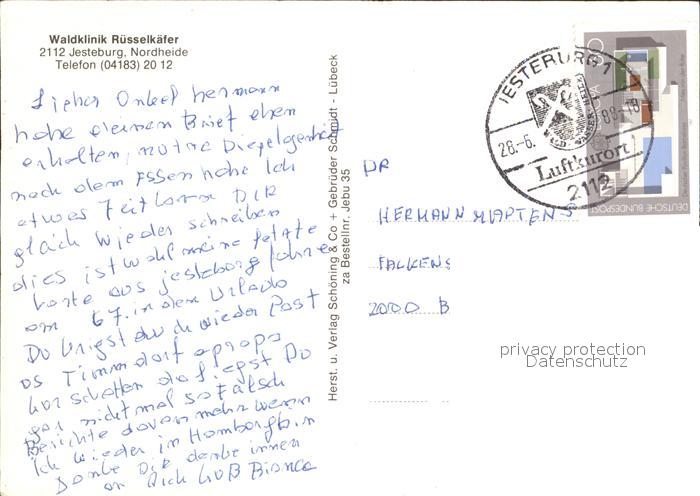 Waldklinik Rüsselkäfer
2112 Jesteburg, Nordheide
Telefon (04183) 20 12
Lieber Onkel Hermann
habe deinen Brief eben
erhalten, nutze die
nach dem Essen habe Ich
etwas Zeit kann Dir
gleich wieder schreiben
dies ist wohl meine letzte
Karte aus Jesteborg fahre
am 6 7. in den Urlaub
Du krigst auch wieder Post
as Timmdorf apropo
da fiegst Du
gar nicht mal so falsch
Berichte davon mehr wenn
Ich wieder in Hamborg bin
Danke Dir denke immer
an Dich KUß Bianca
Herst. u. Verlag Schöning & Co + Gebrüder Schmidt - Lübeck
za Bestellnr. Jebu 35
JESTEBURG 1
28.-6. 88-18
WALD · WASSER · HEIDE
Luftkurort
2112
DEUTSCHE BUNDESPOST
DR
HERMANN MARTENS
FALKENS
2000 B
privacy protection
Datenschutz